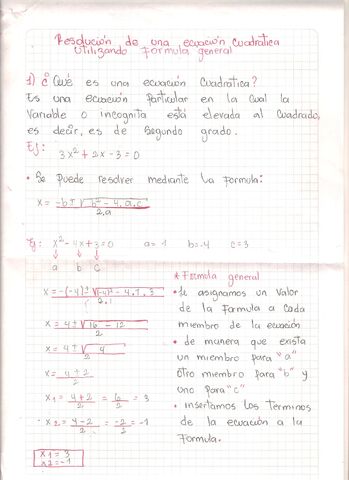 Resolución de una ecuación cuadratica
utilizando Formula general
1) ¿Qué es una ecuación Cuadratica?
Es una ecuación Particular en la Cual la
Variable o incognita está elevada al Cuadrado,
es decir, es de Segundo grado.
Ej:
3x² + 2x - 3 = 0
• Se puede resolver mediante la Formula:
x = -b ± √b² - 4.a.c
2.a
Ej: x² - 4x + 3 = 0 a = 1 b = -4 c = 3
a b c
x = -(-4) ± √(-4)² - 4.1.3
2.1
x = 4 ± √16 - 12
2
x = 4 ± √4
2
x = 4 ± 2
2
x1 = 4 + 2 = 6 = 3
2 2
x2 = 4 - 2 = -2 = -1
2 2
x1 = 3
x2 = -1
* Formula general
• Le asignamos un valor
de la Formula a Cada
miembro de la ecuación
• de manera que exista
un miembro para "a"
otro miembro para "b" y
uno para "c"
• insertamos los terminos
de la ecuación a la
Formula.